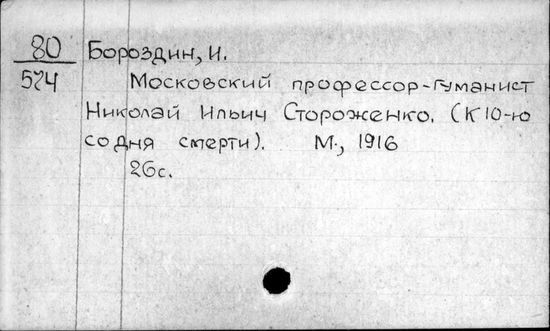 80 Бороздин, И.
574 Московский профессор-гуманист
Николай Ильич Стороженко. (К 10-ю
со дня смерти). М., 1916
26с.